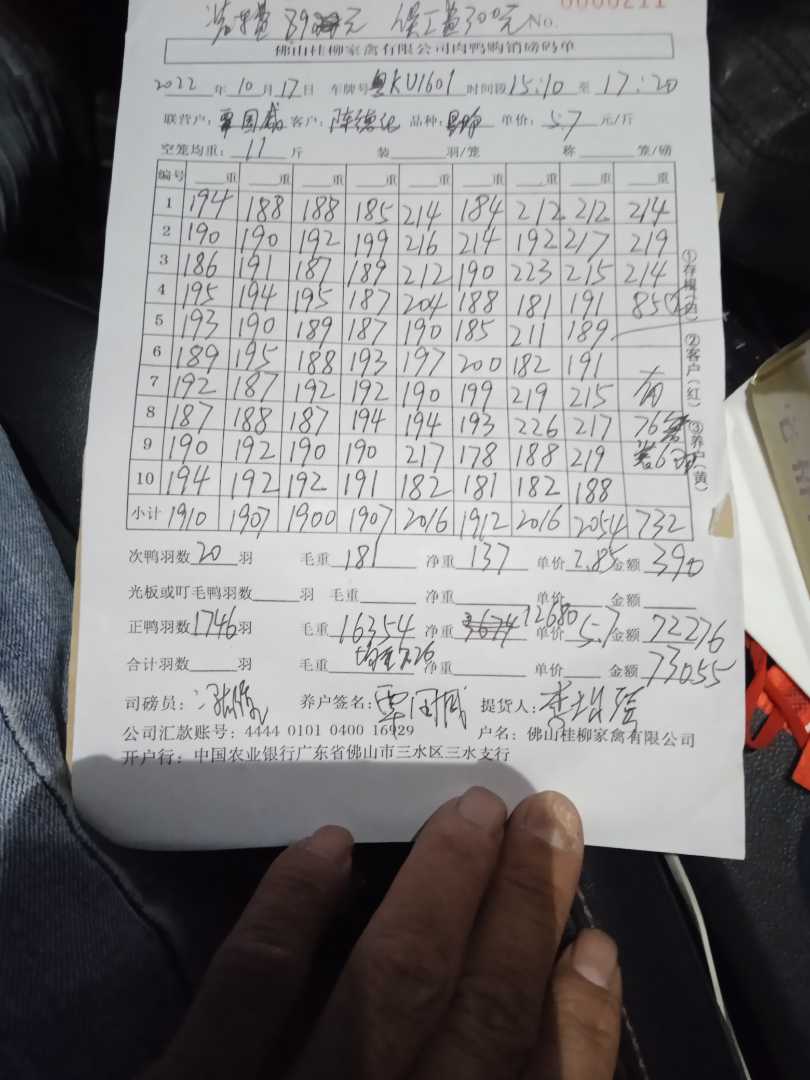 装车费 89 元 误工费300元 No. 0000211
佛山桂柳家禽有限公司肉鸭购销磅码单
2022年10月17日 车牌号 粤KU1601 时间段15:10至17:20
联营户: 覃国威 客户: 陈德记 品种: 单价: 5.7 元/斤
空笼均重: 11 斤 装 羽/笼 称 笼/磅
编号 重 重 重 重 重 重 重 重 重
1 194 188 188 185 214 184 212 212 214
2 190 190 192 199 216 214 192 217 219
3 186 191 187 189 212 190 223 215 214
4 195 194 195 187 204 188 181 191 85
5 193 190 189 187 190 185 211 189
6 189 195 188 193 197 200 182 191
7 192 187 192 192 190 199 219 215
8 187 188 187 194 194 193 226 217 76
9 190 192 190 190 217 178 188 219
10 194 192 192 191 182 181 182 188
小计 1910 1907 1900 1907 2016 1912 2016 2054 732
次鸭羽数 20 羽 毛重 181 净重 137 单价 2.85 金额 390
光板或叮毛鸭羽数 羽 毛重 净重 单价 金额
正鸭羽数 1746 羽 毛重 16354 净重 12680 单价 5.7 金额 72276
合计羽数 羽 毛重 净重 单价 金额 73055
司磅员: 养户签名: 覃国威 提货人:
公司汇款账号: 4444 0101 0400 16929 户名: 佛山桂柳家禽有限公司
开户行: 中国农业银行广东省佛山市三水区三水支行
①存根(白)
②客户(红)
③养户(黄)